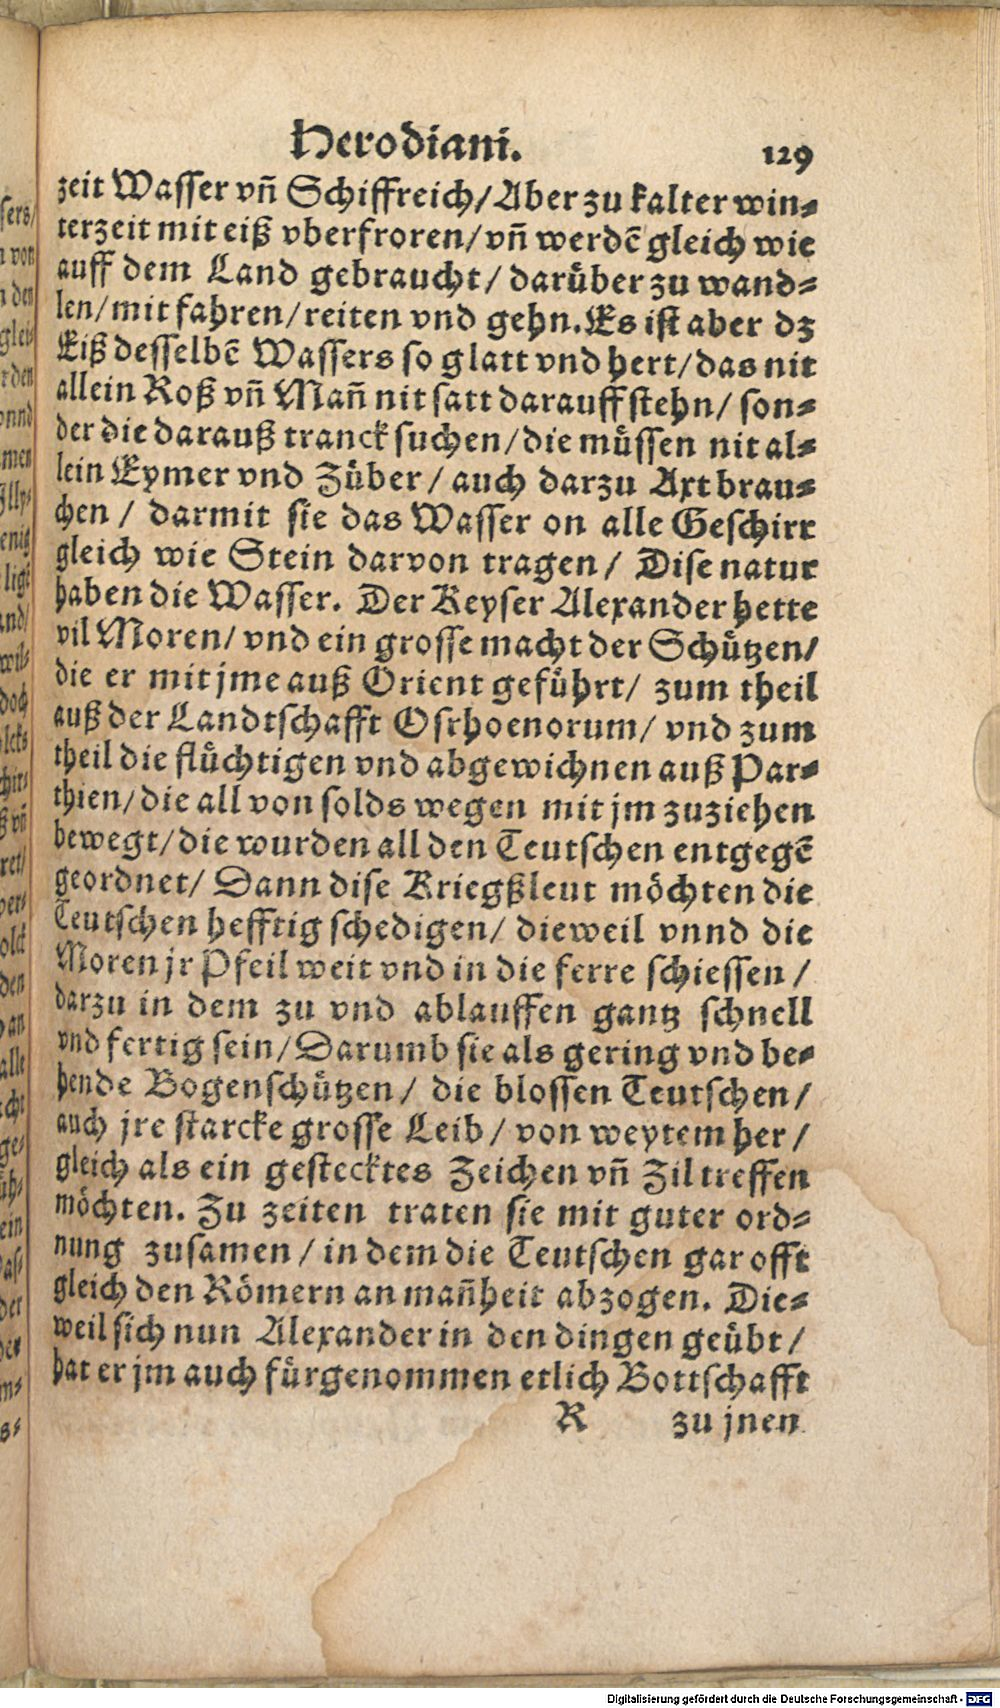 Herodiani. 129
zeit Wasser vñ Schiffreich/Aber zu kalter win-
terzeit mit eiß vberfroren/vñ werdē gleich wie
auff dem Land gebraucht/darüber zu wand-
len/mit fahren/reiten vnd gehn.Es ist aber dz
Eiß desselbē Wassers so glatt vnd hert/das nit
allein Roß vñ Mañ nit satt darauff stehn/son-
der die darauß tranck suchen/die müssen nit al-
lein Eymer vnd Züber/auch darzu Axt brau-
chen/darmit sie das Wasser on alle Geschirr
gleich wie Stein darvon tragen/Dise natur
haben die Wasser. Der Keyser Alexander hette
vil Moren/vnd ein grosse macht der Schützen/
die er mit jme auß Orient geführt/zum theil
auß der Landtschafft Osrhoenorum/vnd zum
theil die flüchtigen vnd abgewichnen auß Par-
thien/die all von solds wegen mit jm zuziehen
bewegt/die wurden all den Teutschen entgegē
geordnet/Dann dise Kriegßleut möchten die
Teutschen hefftig schedigen/dieweil vnnd die
Moren jr Pfeil weit vnd in die ferre schiessen/
darzu in dem zu vnd ablauffen gantz schnell
vnd fertig sein/Darumb sie als gering vnd be-
hende Bogenschützen/die blossen Teutschen/
auch jre starcke grosse Leib/von weytem her/
gleich als ein gestecktes Zeichen vñ Zil treffen
möchten. Zu zeiten traten sie mit guter ord-
nung zusamen/in dem die Teutschen gar offt
gleich den Römern an mañheit abzogen. Die-
weil sich nun Alexander in den dingen geübt/
hat er jm auch fürgenommen etlich Bottschafft
R zu jnen
Digitalisierung gefördert durch die Deutsche Forschungsgemeinschaft - DFG